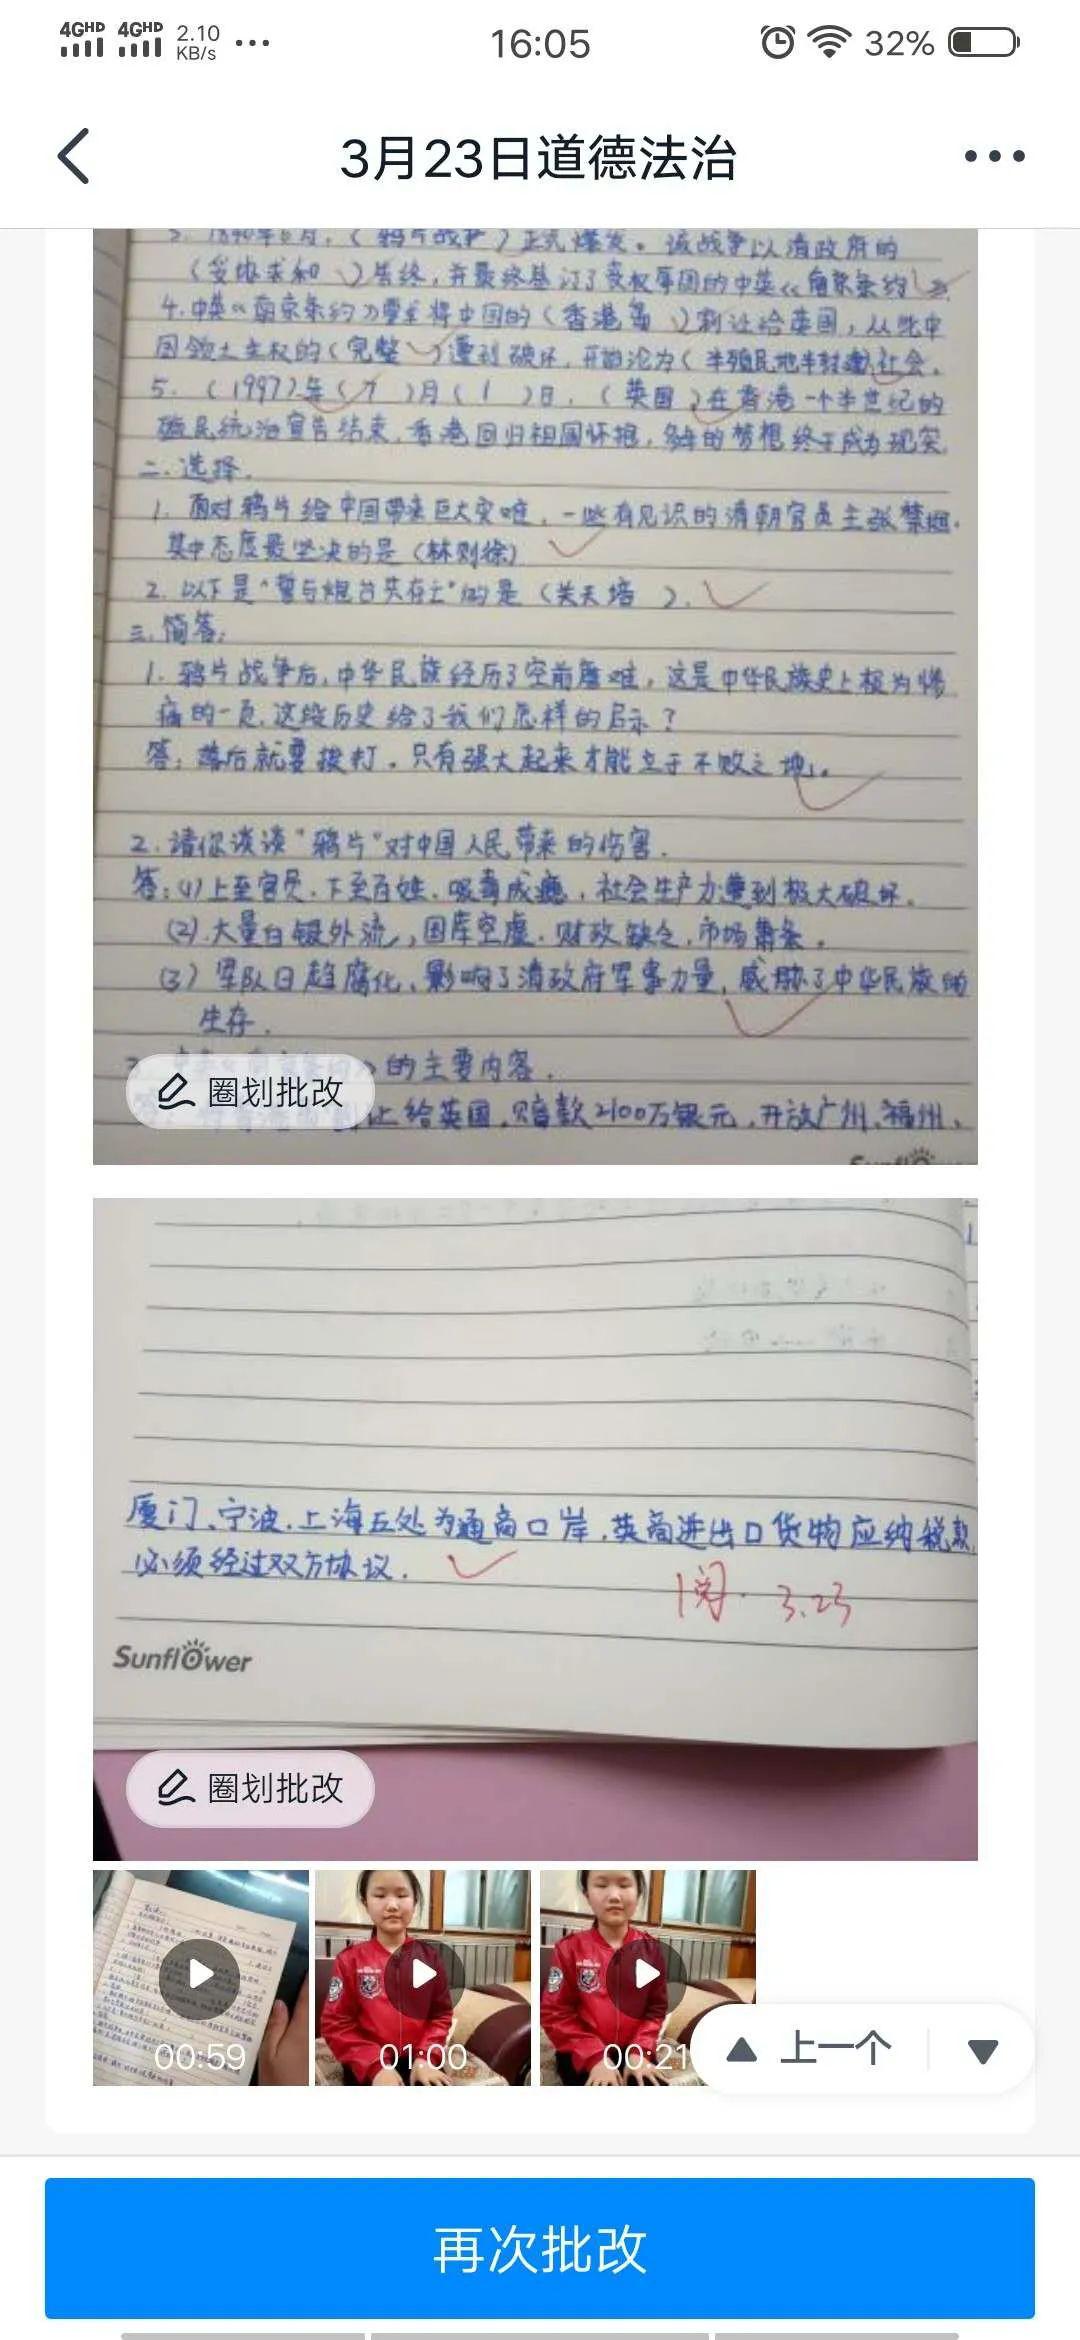 4GHD 4GHD 2.10 KB/s ... 16:05 32%
3月23日道德法治
3. 1840年6月,(鸦片战争)正式爆发。该战争以清政府的
(妥协求和 )告终,并最终签订了丧权辱国的中英《南京条约》
4.中英《南京条约》要求将中国的(香港岛 )割让给英国,从此中
国领土主权的(完整 )遭到破坏,开始沦为(半殖民地半封建)社会。
5. (1997)年(7 )月(1 )日,(英国 )在香港一个半世纪的
殖民统治宣告结束,香港回归祖国怀抱,多年的梦想终于成为现实
二.选择.
1. 面对鸦片给中国带来巨大灾难,一些有见识的清朝官员主张禁烟.
其中态度最坚决的是(林则徐)
2. 以下是"誓与炮台共存亡"的是(关天培 ).
三.简答:
1. 鸦片战争后,中华民族经历了空前磨难,这是中华民族史上极为惨
痛的一页,这段历史给了我们怎样的启示?
答:落后就要挨打。只有强大起来才能立于不败之地。
2.请你谈谈"鸦片"对中国人民带来的伤害.
答:(1)上至官员.下至百姓.吸毒成瘾,社会生产力遭到极大破坏.
(2).大量白银外流,国库空虚.财政缺乏,市场萧条.
(3)军队日趋腐化,影响了清政府军事力量,威胁了中华民族的
生存.
的主要内容.
圈划批改
让给英国,赔款2100万银元,开放广州、福州、
Sunflower
厦门、宁波.上海五处为通商口岸,英商进出口货物应纳税款
必须经过双方协议.
阅. 3.23
Sunflower
圈划批改
00:59 01:00 00:21
上一个
再次批改